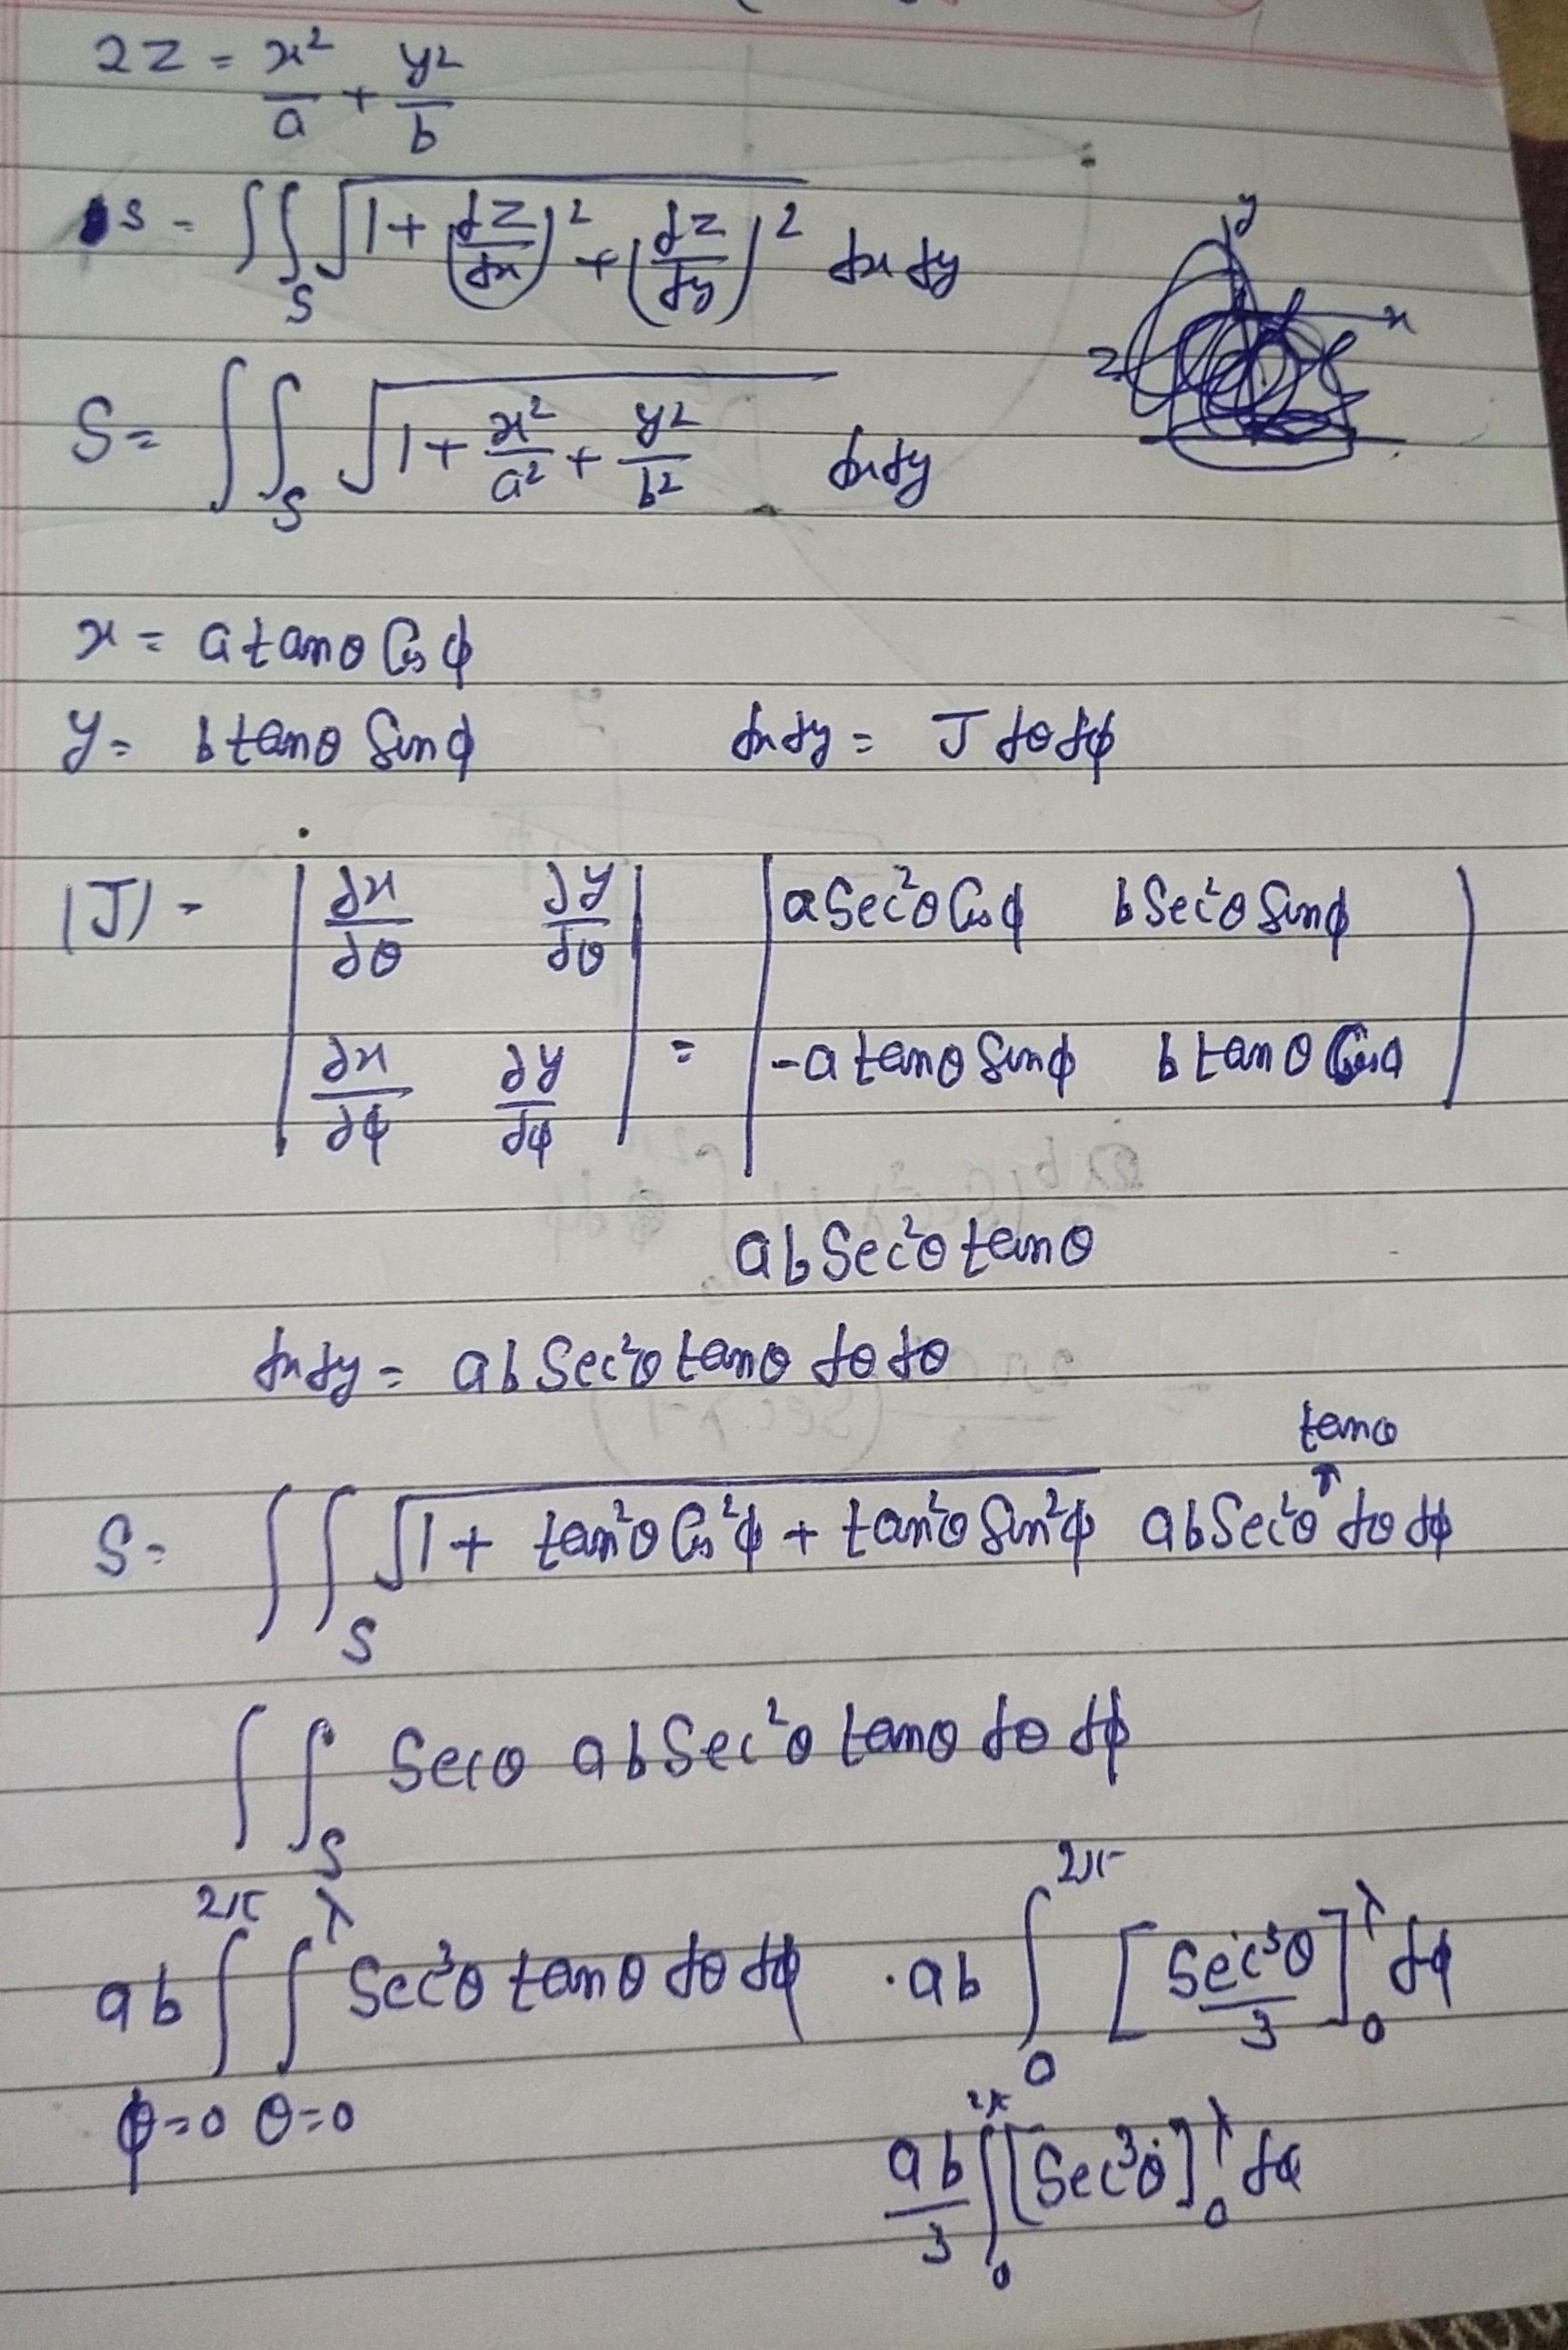 2z = x²/a + y²/b
S = ∫∫_S √(1 + (dz/dx)² + (dz/dy)²) dx dy
y
x
z
S = ∫∫_S √(1 + x²/a² + y²/b²) dx dy
x = a tanθ Cos ϕ
y = b tanθ Sin ϕ dx dy = J dθ dϕ
|J| = | ∂x/∂θ ∂y/∂θ | = | a Sec²θ Cos ϕ b Sec²θ Sin ϕ |
| ∂x/∂ϕ ∂y/∂ϕ | = | -a tanθ Sin ϕ b tanθ Cos |
ab Sec²θ tanθ
dx dy = ab Sec²θ tanθ dθ dθ
tanθ
S = ∫∫_S √(1 + tan²θ Cos²ϕ + tan²θ Sin²ϕ) ab Sec²θ ↑ dθ dϕ
∫∫_S Secθ ab Sec²θ tanθ dθ dϕ
ab ∫_{ϕ=0}^{2π} ∫_{θ=0}^{λ} Sec³θ tanθ dθ dϕ . ab ∫_0^{2π} [Sec³θ/3]_0^λ dϕ
ab/3 ∫_0^{2π} [Sec³θ]_0^λ dϕ